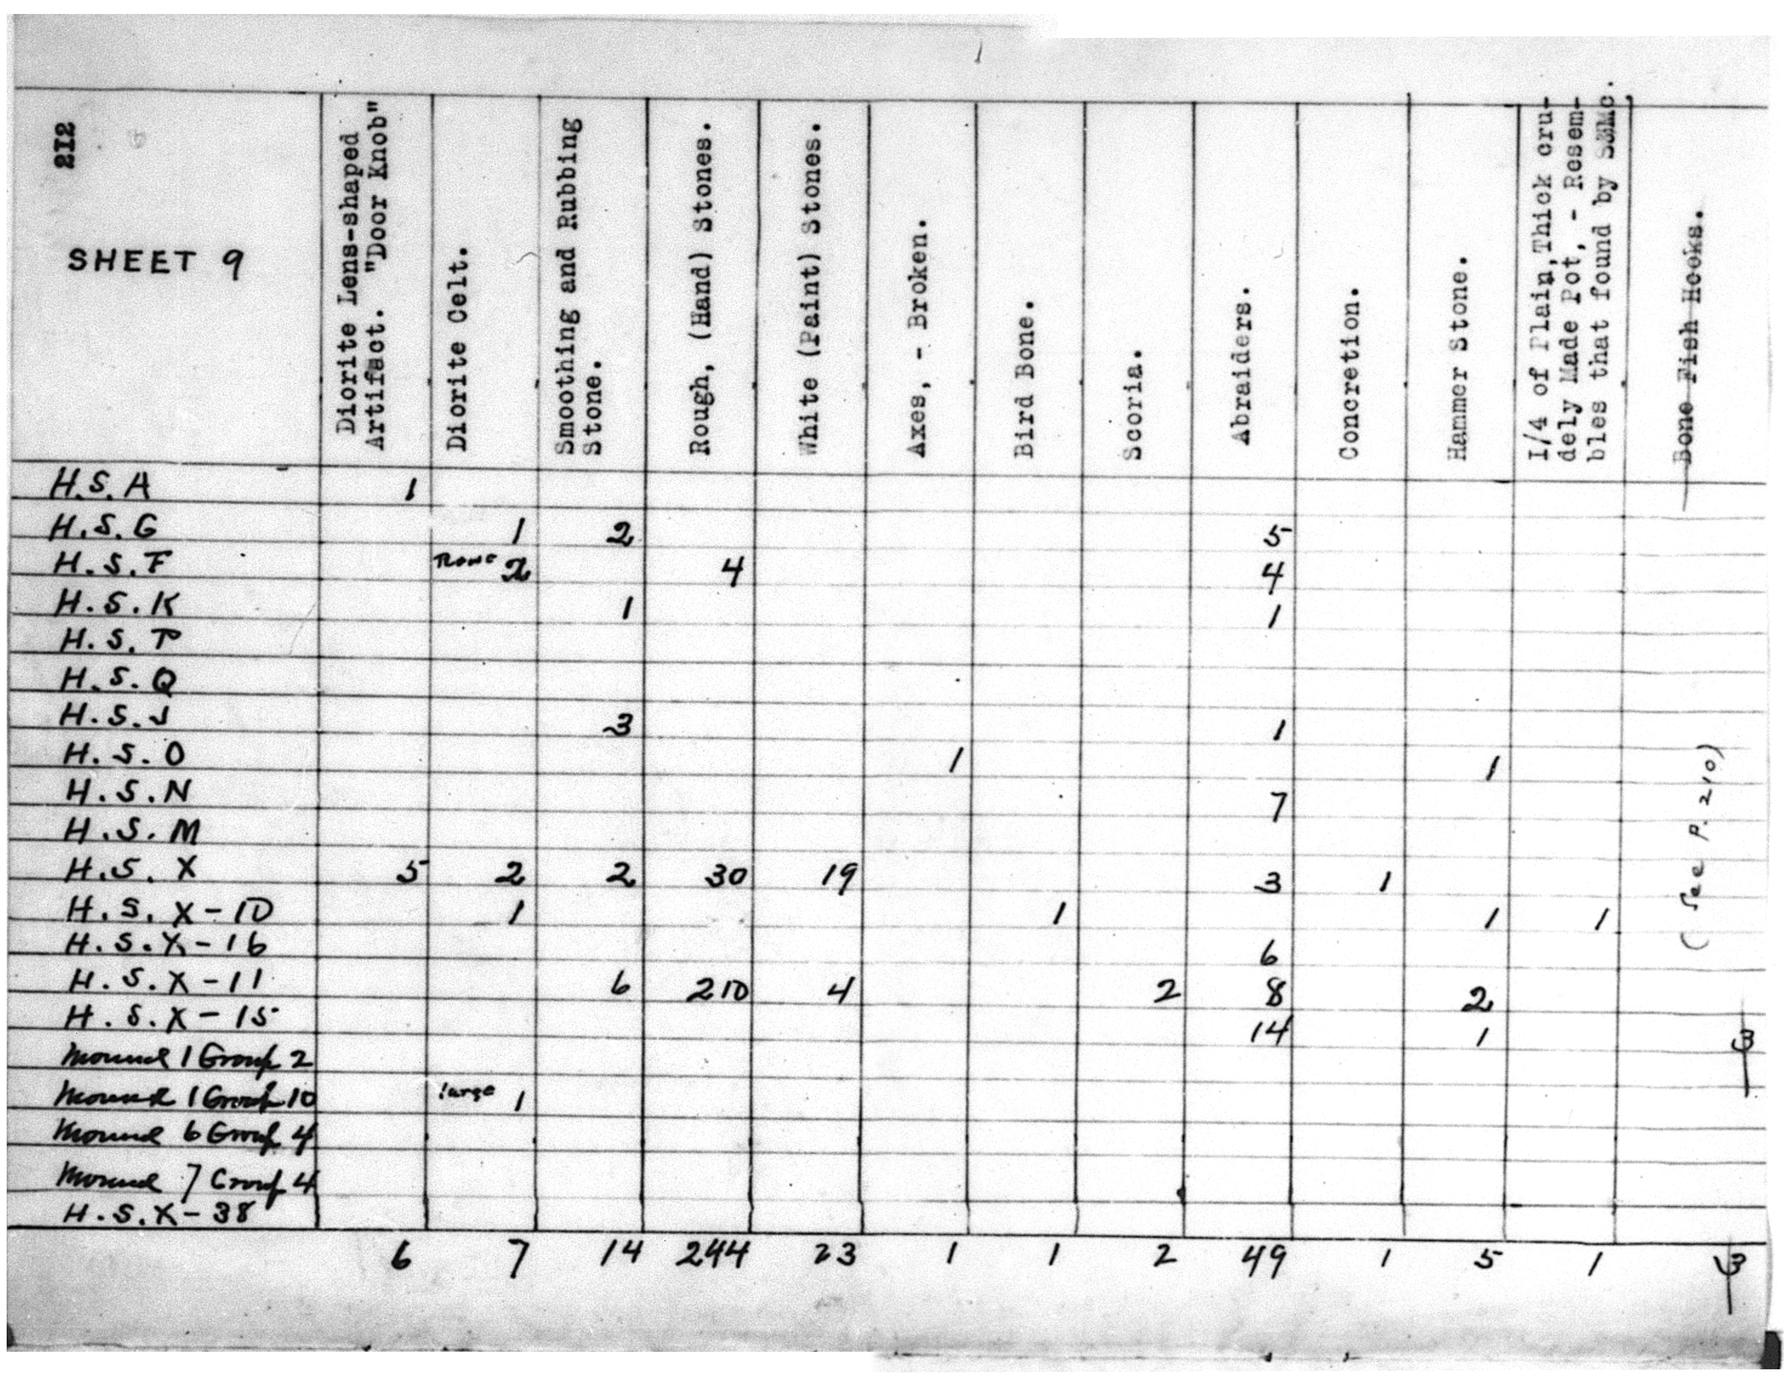 212
SHEET 9
Diorite Lens-shaped
Artifact. "Door Knob"
Diorite Celt.
Smoothing and Rubbing
Stone.
Rough, (Hand) Stones.
White (Paint) Stones.
Axes, - Broken.
Bird Bone.
Scoria.
Abraiders.
Concretion.
Hammer Stone.
I/4 of Plain, Thick cru-
dely Made Pot, - Resem-
bles that found by
Bone Fish Hooks.
H.S.A 1
H.S.G 1 2 5
H.S.F 2 4 4
H.S.K 1 1
H.S.P
H.S.Q
H.S.J 3 1
H.S.O 1 1
H.S.N 7
H.S.M
H.S.X 5 2 2 30 19 3 1
H.S.X-10 1 1 1 1
H.S.X-16 6
H.S.X-11 6 210 4 2 8 2
H.S.X-15 14 1 3
(See P. 210)
Mound 1 Group 2
Mound 1 Group 10 large 1
Mound 6 Group 4
Mound 7 Group 4
H.S.X-38
6 7 14 244 23 1 1 2 49 1 5 1 3